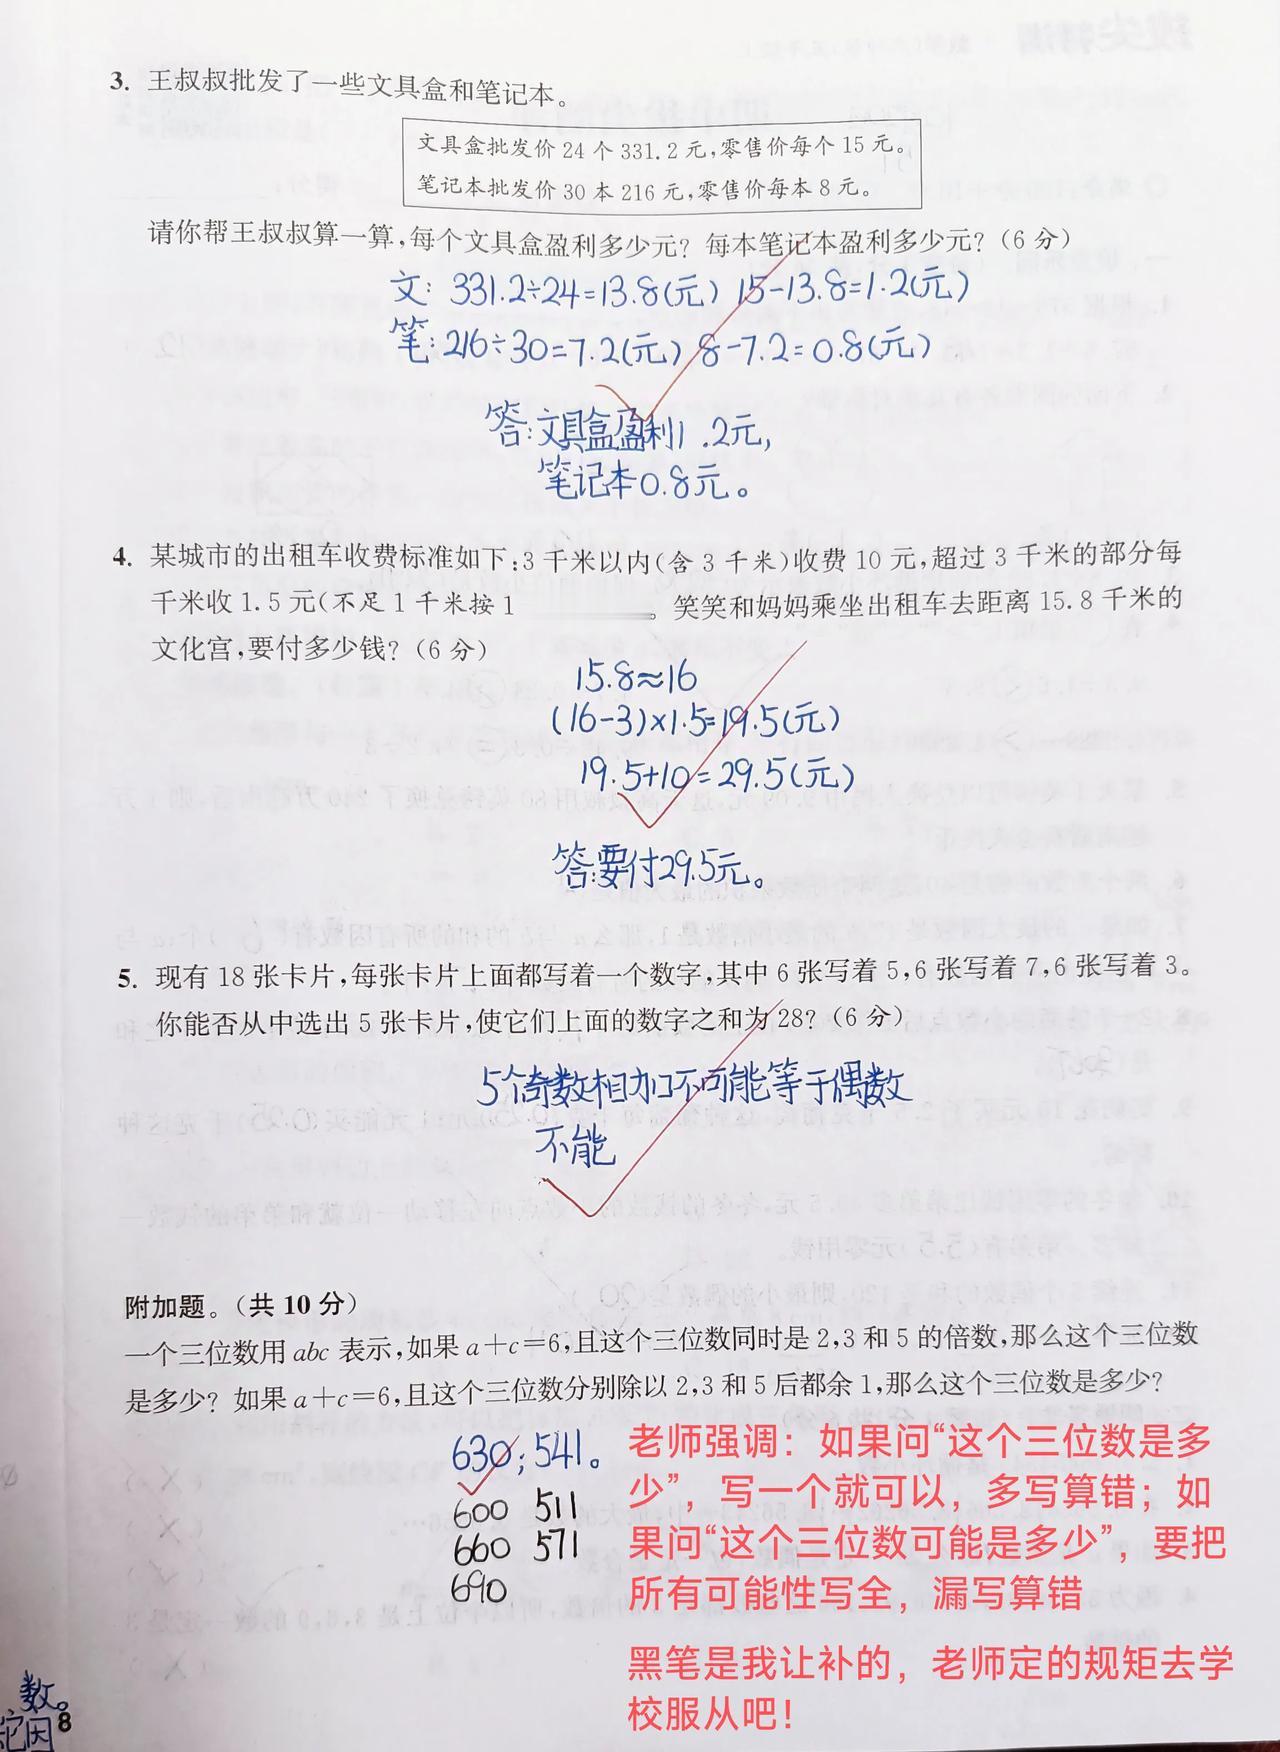 3. 王叔叔批发了一些文具盒和笔记本。
文具盒批发价24个331.2元,零售价每个15元。
笔记本批发价30本216元,零售价每本8元。
请你帮王叔叔算一算,每个文具盒盈利多少元？每本笔记本盈利多少元？(6分)
文: 331.2÷24=13.8(元) 15-13.8=1.2(元)
笔:216÷30=7.2(元) 8-7.2=0.8(元)
答:文具盒盈利1.2元,
笔记本0.8元。
4. 某城市的出租车收费标准如下:3千米以内(含3千米)收费10元,超过3千米的部分每
千米收1.5元(不足1千米按1 。笑笑和妈妈乘坐出租车去距离15.8千米的
文化宫,要付多少钱？(6分)
15.8≈16
(16-3)×1.5=19.5(元)
19.5+10=29.5(元)
答:要付29.5元。
5. 现有18张卡片,每张卡片上面都写着一个数字,其中6张写着5,6张写着7,6张写着3。
你能否从中选出5张卡片,使它们上面的数字之和为28？(6分)
5个奇数相加不可能等于偶数
不能
附加题。(共10分)
一个三位数用abc表示,如果a+c=6,且这个三位数同时是2,3和5的倍数,那么这个三位数
是多少？如果a+c=6,且这个三位数分别除以2,3和5后都余1,那么这个三位数是多少？
630;541。
600 511
660 571
690
老师强调：如果问“这个三位数是多
少”，写一个就可以，多写算错；如
果问“这个三位数可能是多少”，要把
所有可能性写全，漏写算错
黑笔是我让补的，老师定的规矩去学
校服从吧！
数。
8